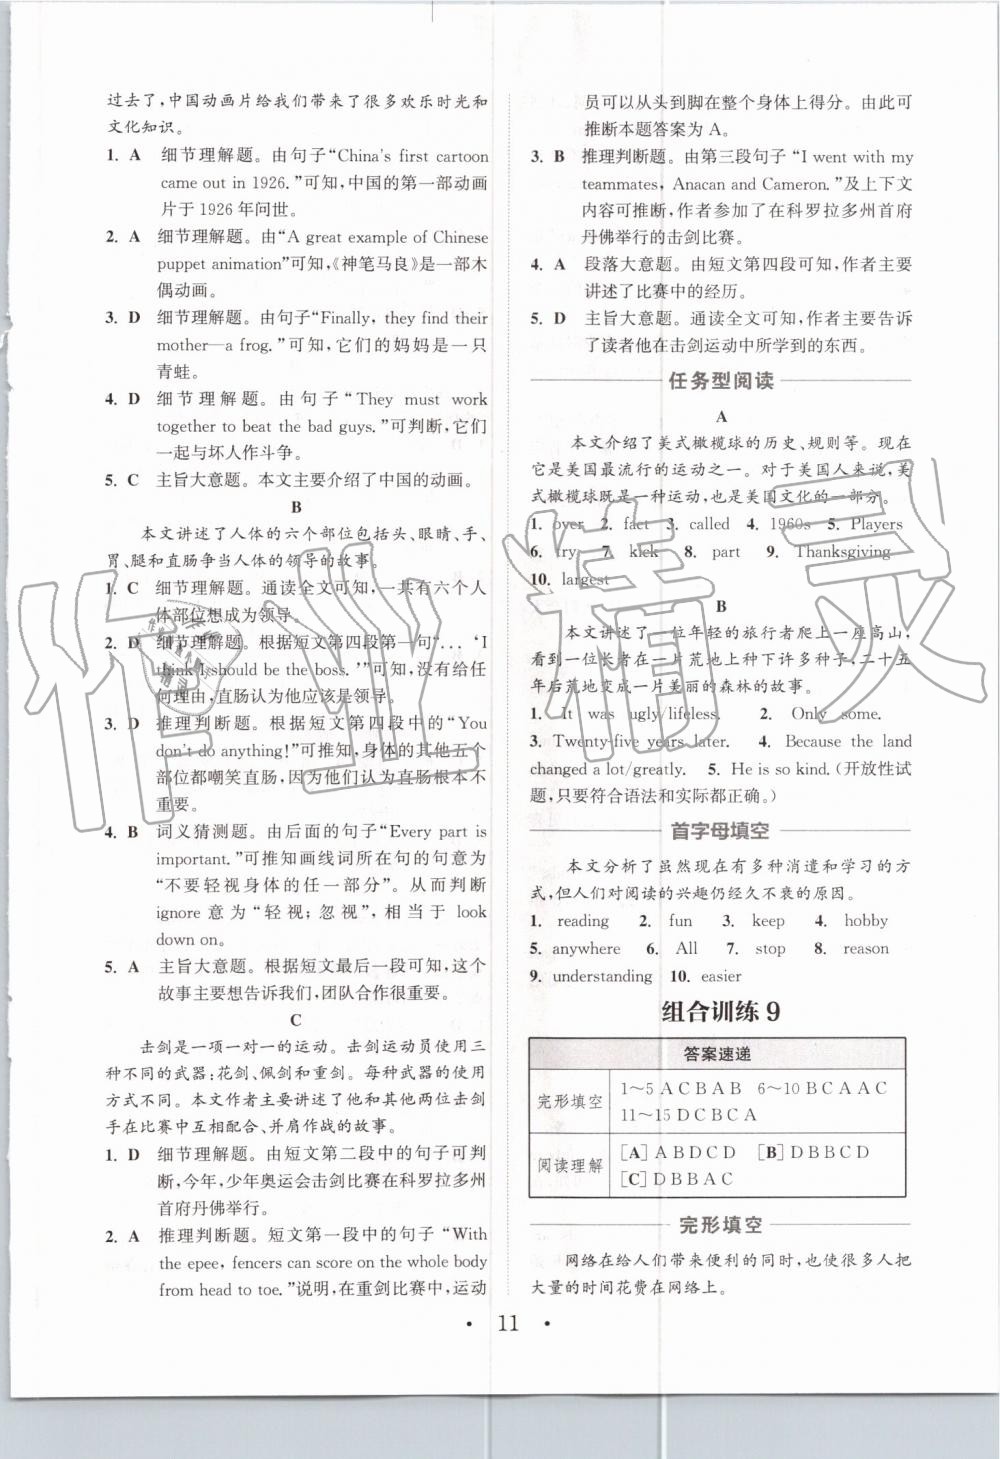 过去了,中国动画片给我们带来了很多欢乐时光和
文化知识。
1. A 细节理解题。由句子“China's first cartoon
came out in 1926.”可知,中国的第一部动画
片于 1926 年问世。
2. A 细节理解题。由“A great example of Chinese
puppet animation”可知,《神笔马良》是一部木
偶动画。
3. D 细节理解题。由句子“Finally, they find their
mother—a frog.”可知,它们的妈妈是一只
青蛙。
4. D 细节理解题。由句子“They must work
together to beat the bad guys.”可判断,它们
一起与坏人作斗争。
5. C 主旨大意题。本文主要介绍了中国的动画。
B
本文讲述了人体的六个部位包括头、眼睛、手、
胃、腿和直肠争当人体的领导的故事。
1. C 细节理解题。通读全文可知,一共有六个人
体部位想成为领导。
2. D 细节理解题。根据短文第四段第一句“... ‘I
think I should be the boss.’”可知,没有给任
何理由,直肠认为他应该是领导。
3. D 推理判断题。根据短文第四段中的“You
don't do anything!”可推知,身体的其他五个
部位都嘲笑直肠,因为他们认为直肠根本不
重要。
4. B 词义猜测题。由后面的句子“Every part is
important.”可推知画线词所在句的句意为
“不要轻视身体的任一部分”。从而判断
ignore 意为“轻视;忽视”,相当于 look
down on。
5. A 主旨大意题。根据短文最后一段可知,这个
故事主要想告诉我们,团队合作很重要。
C
击剑是一项一对一的运动。击剑运动员使用三
种不同的武器:花剑、佩剑和重剑。每种武器的使用
方式不同。本文作者主要讲述了他和其他两位击剑
手在比赛中互相配合、并肩作战的故事。
1. D 细节理解题。由短文第二段中的句子可判
断,今年,少年奥运会击剑比赛在科罗拉多州
首府丹佛举行。
2. A 推理判断题。短文第一段中的句子“With
the epee, fencers can score on the whole body
from head to toe.”说明,在重剑比赛中,运动
员可以从头到脚在整个身体上得分。由此可
推断本题答案为 A。
3. B 推理判断题。由第三段句子“I went with my
teammates, Anacan and Cameron.”及上下文
内容可推断,作者参加了在科罗拉多州首府
丹佛举行的击剑比赛。
4. A 段落大意题。由短文第四段可知,作者主要
讲述了比赛中的经历。
5. D 主旨大意题。通读全文可知,作者主要告诉
了读者他在击剑运动中所学到的东西。
任务型阅读
A
本文介绍了美式橄榄球的历史、规则等。现在
它是美国最流行的运动之一。对于美国人来说,美
式橄榄球既是一种运动,也是美国文化的一部分。
1. over 2. fact 3. called 4. 1960s 5. Players
6. try 7. kick 8. part 9. Thanksgiving
10. largest
B
本文讲述了一位年轻的旅行者爬上一座高山,
看到一位长者在一片荒地上种下许多种子,二十五
年后荒地变成一片美丽的森林的故事。
1. It was ugly/lifeless. 2. Only some.
3. Twenty-five years later. 4. Because the land
changed a lot/greatly. 5. He is so kind.(开放性试
题,只要符合语法和实际都正确。)
首字母填空
本文分析了虽然现在有多种消遣和学习的方
式,但人们对阅读的兴趣仍经久不衰的原因。
1. reading 2. fun 3. keep 4. hobby
5. anywhere 6. All 7. stop 8. reason
9. understanding 10. easier
组合训练 9
答案速递
完形填空 1～5 A C B A B 6～10 B C A A C
11～15 D C B C A
阅读理解 [A] A B D C D [B] D B B C D
[C] D B B A C
完形填空
网络在给人们带来便利的同时,也使很多人把
大量的时间花费在网络上。
• 11 •
作业精灵